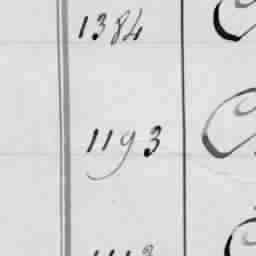 1384
1193